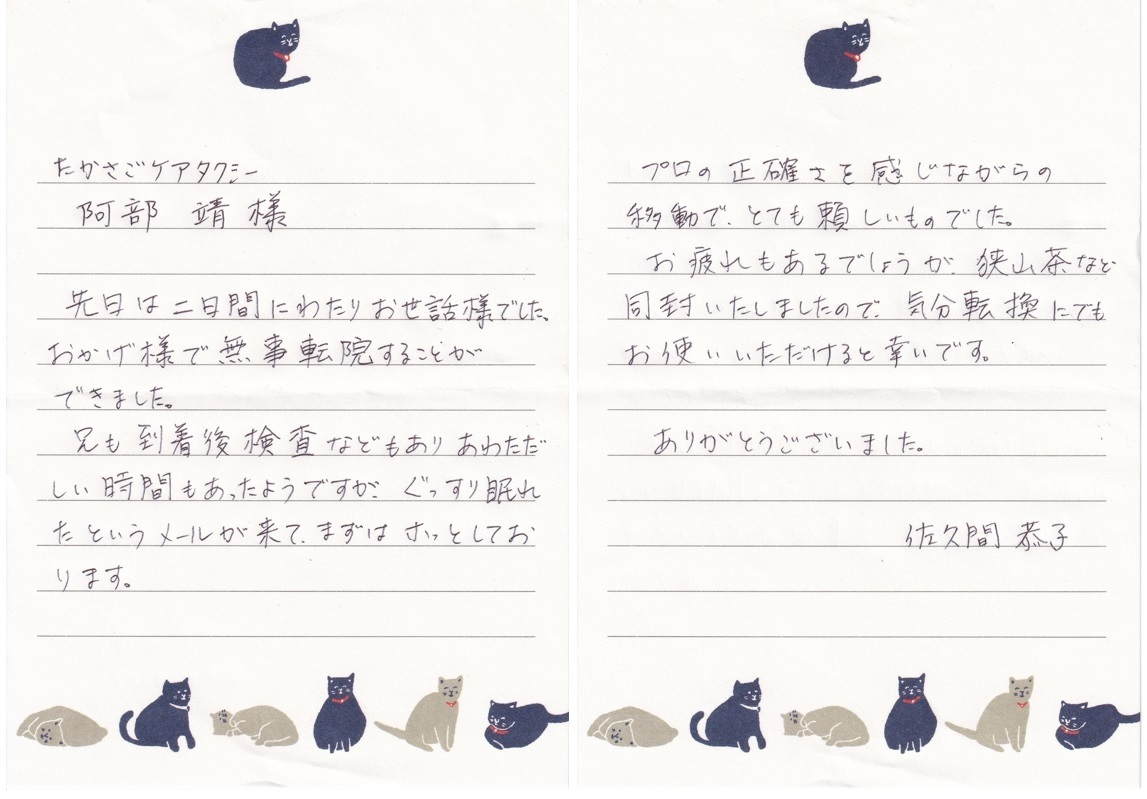 たかさごケアタクシー
阿部 靖様
先日は二日間にわたりお世話様でした。
おかげ様で無事転院することが
できました。
兄も到着後検査などもありあわただ
しい時間もあったようですが、ぐっすり眠れ
たというメールが来て、まずはホッとしてお
ります。
プロの正確さを感じながらの
移動で、とても頼しいものでした。
お疲れもあるでしょうが、狭山茶など
同封いたしましたので、気分転換にでも
お使いいただけると幸いです。
ありがとうございました。
佐久間 恭子